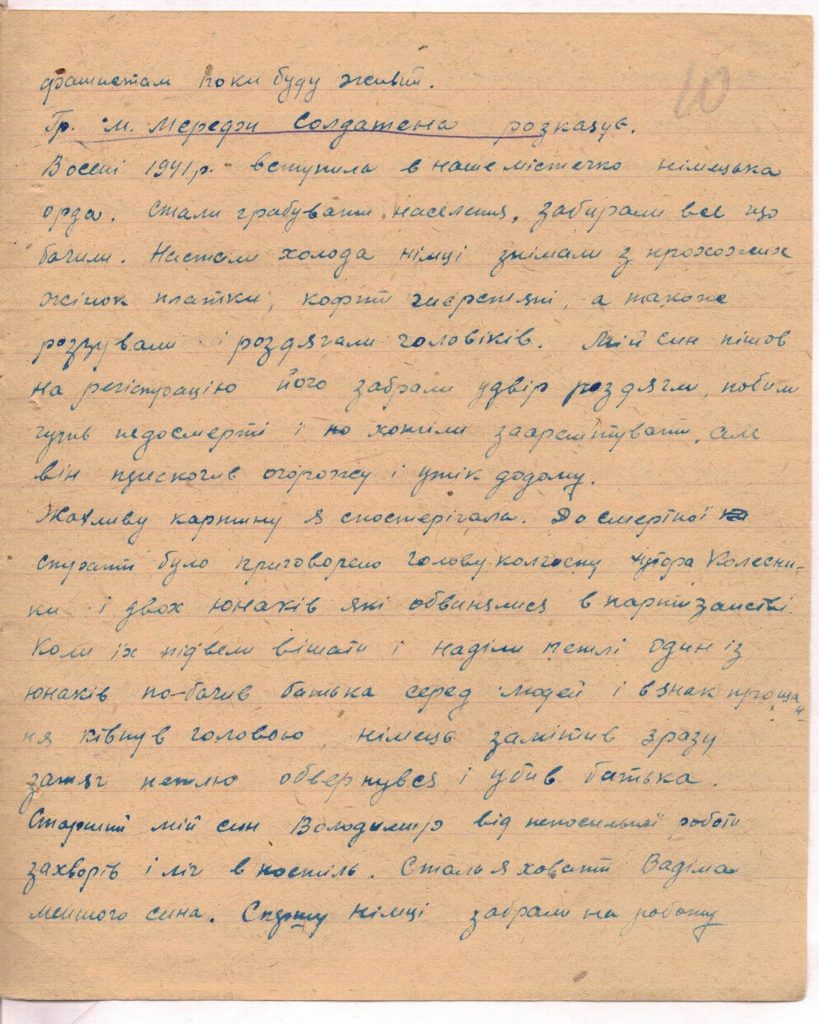 фашистам поки буду живий.
10
Гр. м. Мерефи Солдатена розказує.
Восені 1941 р. вступила в наше містечко німецька
орда. Стали грабувати населення, забирали все що
бачили. Настали холода німці знімали з прохожих
жінок платки, кофти шерстяні, а також
роззували і роздягали чоловіків. Мій син пішов
на регістрацію його забрали удвір роздягли, побили
чуть недосмерті і хотіли заарештувати, але
він прискочив огорожу і утік додому.
Жахливу картину я спостерігала. До смертної
страти було приговорено голову колгоспу хутора Колесни-
ки і двох юнаків які обвинялися в партизанстві.
Коли їх підвели вішати і наділи петлі один із
юнаків по-бачив батька серед людей і взнак проща
ня ківнув головою, німець замітив зразу
затяг петлю обвернувся і убив батька.
Старший мій син Володимир від непосильної роботи
захворів і ліг в постіль. Стала я ховати Вадіма
меншого сина. німці забрали на роботу